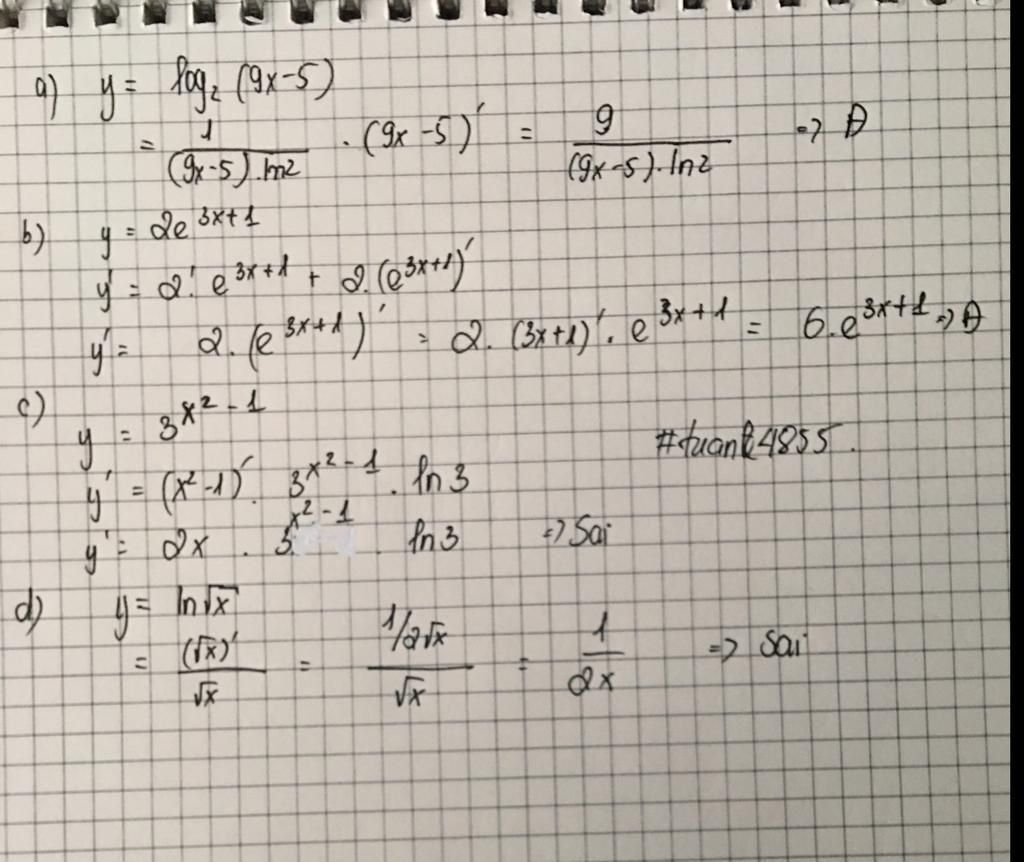 a) y = log₂ (9x-5)
= 1/((9x-5).ln2) . (9x-5)' = 9/((9x-5).ln2) => Đ
b) y = 2e^(3x+1)
y' = 2'. e^(3x+1) + 2.(e^(3x+1))'
y' = 2.(e^(3x+1))' = 2.(3x+1)'. e^(3x+1) = 6.e^(3x+1) => Đ
c)
y = 3^(x²-1)
#tuank4855.
y' = (x²-1)'. 3^(x²-1) . ln3
y' = 2x . 3^(x²-1) . ln3 => Sai
d) y = ln√x
= (√x)'/√x = (1/2√x)/√x = 1/2x => Sai